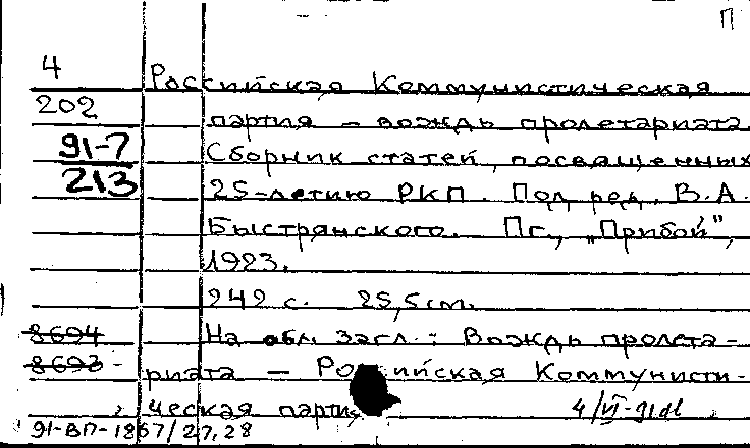 П
4
Российская Коммунистическая
202
партия – вождь пролетариата
91-7
213
Сборник статей, посвященных
25-летию РКП. Под ред. В.А.
Быстрянского. Пг., „Прибой",
1923.
242 с. 25,5 см.
8694
На обл. загл.: Вождь пролета-
8693
риата – Российская Коммунисти-
ческая партия
4/VI-91
91-ВП-1867/27,28